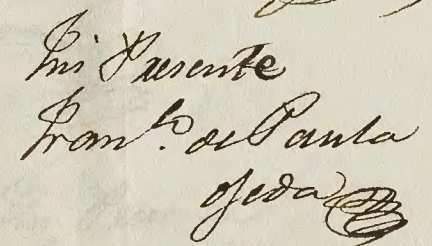 Fui Presente
Fran.co de Paula
ojeda